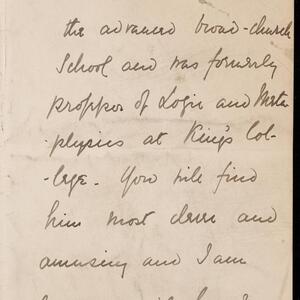 the advanced broad-church
School and was formerly
proffor of Logic and Meta
physics at King's Col-
-lege. You will find
him most clever and
amusing and I am